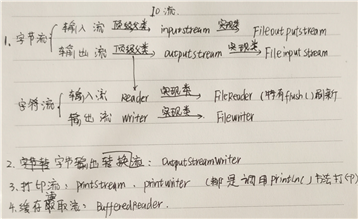 IO流
1、字节流 输入流 顶级父类 inputstream 实现类 Fileoutputstream
输出流 顶级父类 outputstream 实现类 Fileinputstream
字符流 输入流 Reader 实现类 FileReader (特有flush()刷新
输出流 writer 实现类 Filewriter
2. 字节输出转换流: OutputStreamWriter
3. 打印流: printStream. printwriter (都是调用println()方法打印)
4. 缓存取流: BufferedReader.